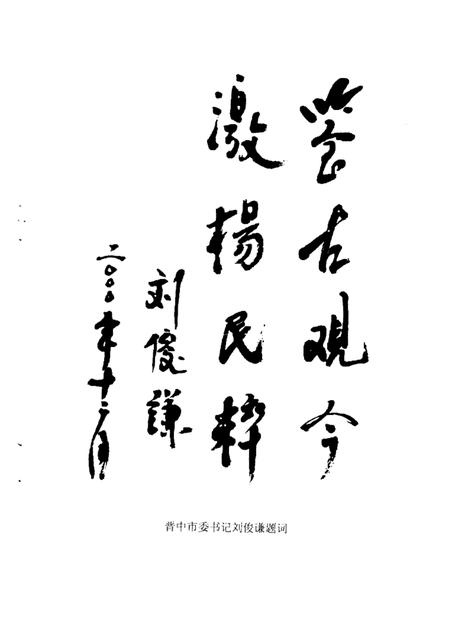 古观今
激揚民粹
刘俊謙
二〇〇〇年十二月
晋中市委书记刘俊谦题词